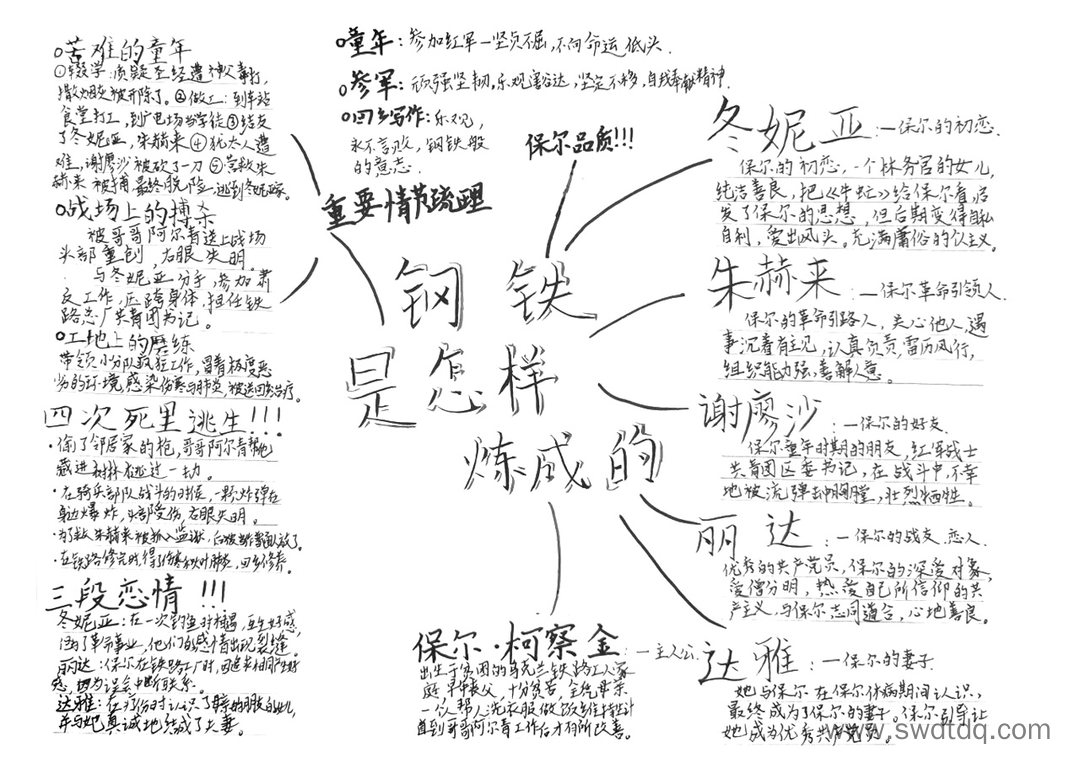 苦难的童年
①辍学：质疑圣经遭神父毒打，
撒烟灰被开除了。②做工：到车站
食堂打工，到发电场当学徒③结友
了冬妮亚，朱赫来④犹太人遭
难，谢廖沙被砍了一刀⑤营救朱
赫来被捕最终脱险，逃到冬妮亚家。
战场上的搏杀
被哥哥阿尔青送上战场
头部重创，右眼失明。
与冬妮亚分手，参加肃
反工作，压垮身体，担任铁
路总厂共青团书记。
工地上的磨练
带领小分队疯狂工作，冒着极度恶
劣的环境，感染伤寒与肺炎，被送回乡治疗。
四次死里逃生!!!
·偷了邻居家的枪，哥哥阿尔青帮他
藏进树林逃过一劫
·在骑兵部队战斗的时候，一颗炸弹在
身边爆炸，头部受伤，右眼失明。
·为了救朱赫来被抓入监狱，后被
·在铁路修完时，得了伤寒和大叶肺炎，回乡修养。
三段恋情!!!
冬妮亚：在一次钓鱼时相遇，互生好感，
因为了革命事业，他们的感情出现裂缝。
丽达：保尔在铁路工厂时，
感，因为误会中断联系。
达雅：在
并与她真诚地结成了夫妻。
童年：参加红军—坚贞不屈，不向命运低头.
参军：顽强坚韧.乐观豁达，坚定不移，自我奉献精神.
回乡写作：乐观，
永不言败，钢铁般
的意志.
保尔品质!!!
重要情节疏理
钢铁
是怎样
炼成的
冬妮亚：—保尔的初恋.
保尔的初恋，一个林务官的女儿，
纯洁善良，把《牛虻》给保尔看，启
发了保尔的思想，但后期变得自私
自利，爱出风头。充满庸俗的个人主义。
朱赫来：—保尔革命引领人.
保尔的革命引路人，关心他人，遇
事沉着有主见，认真负责，雷厉风行，
组织能力强，善解人意。
谢廖沙：—保尔的好友.
保尔童年时期的朋友，红军战士
共青团区委书记，在战斗中，不幸
地被流弹击中胸膛，壮烈牺牲。
丽达：—保尔的战友.恋人.
优秀的共产党员，保尔的深爱对象，
爱憎分明，热爱自己所信仰的共
产主义，与保尔志同道合，心地善良。
达雅：—保尔的妻子.
她与保尔在保尔休病期间认识，
最终成为了保尔的妻子。保尔引导让
她成为优秀共产党员。
保尔·柯察金：—主人公.
出生于贫困的乌克兰铁路工人家
庭，早年丧父，十分贫苦，全凭母亲
一个人帮人洗衣服做饭来维持生计
直到哥哥阿尔青工作后才有所改善。
www.swdtdq.com